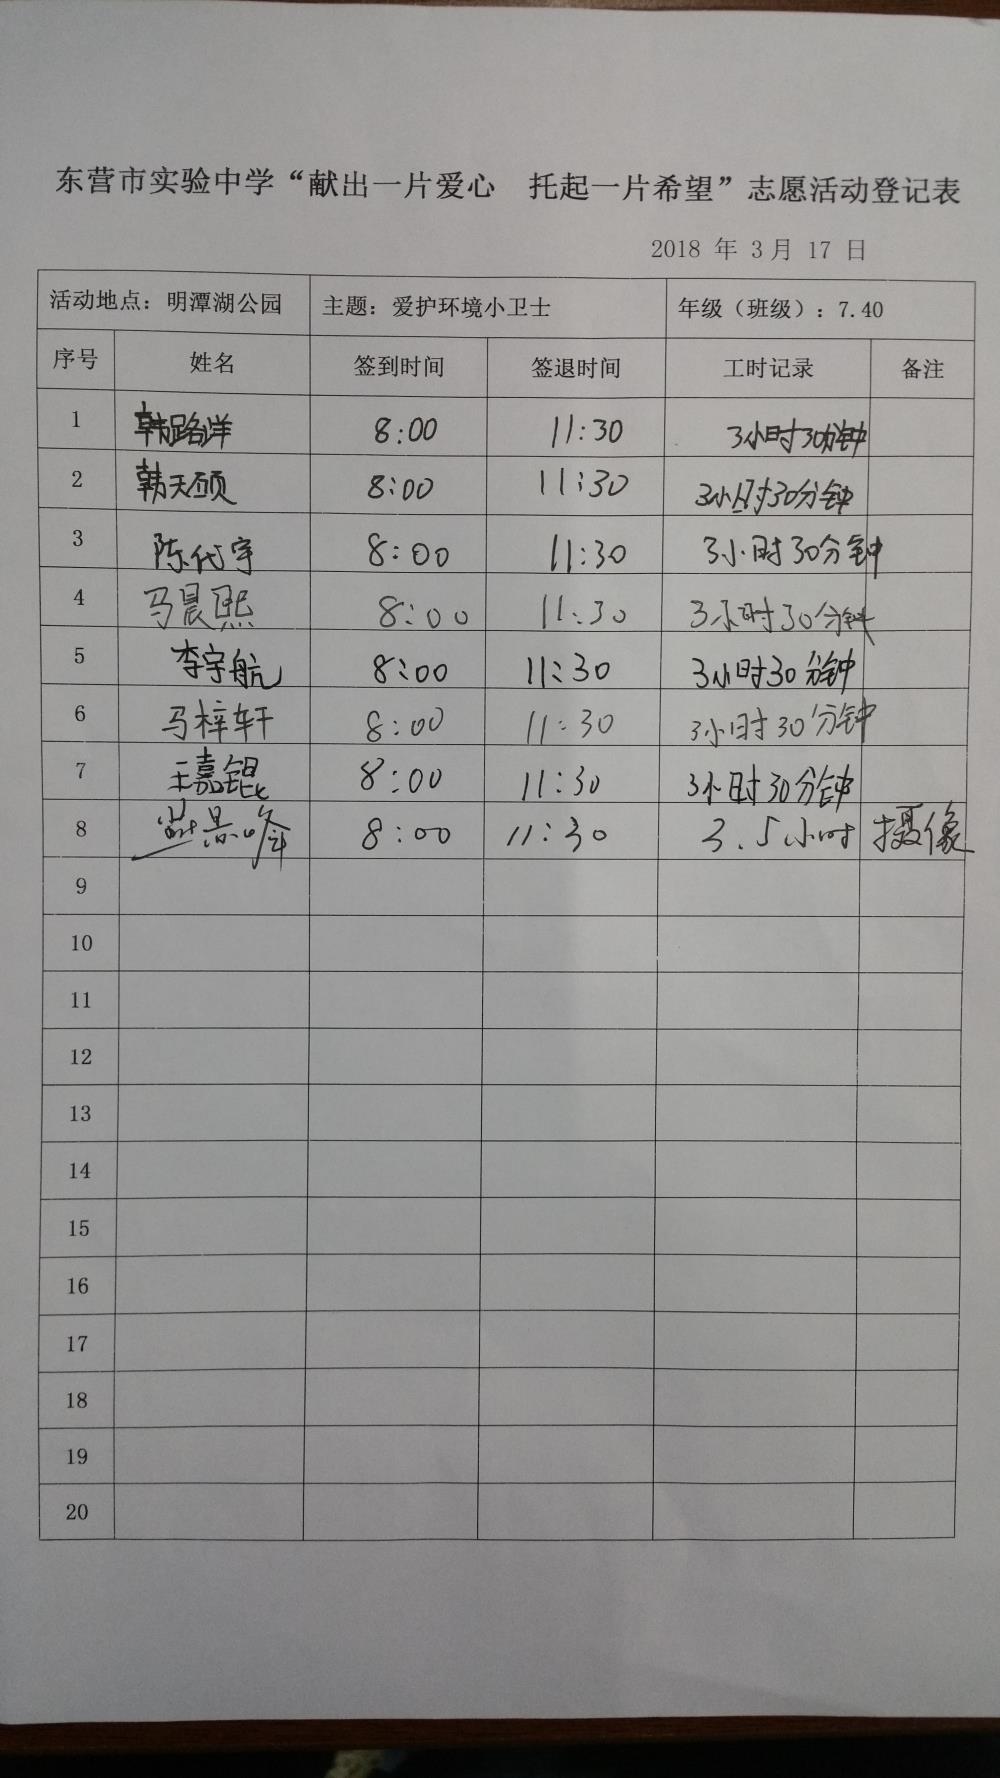 东营市实验中学“献出一片爱心 托起一片希望”志愿活动登记表
2018 年 3 月 17 日
活动地点：明潭湖公园 主题：爱护环境小卫士 年级（班级）：7.40
序号 姓名 签到时间 签退时间 工时记录 备注
1 韩路洋 8:00 11:30 3小时30分钟
2 韩天硕 8:00 11:30 3小时30分钟
3 陈代宇 8:00 11:30 3小时30分钟
4 马晨熙 8:00 11:30 3小时30分钟
5 李宇航 8:00 11:30 3小时30分钟
6 马梓轩 8:00 11:30 3小时30分钟
7 王嘉锟 8:00 11:30 3小时30分钟
8 8:00 11:30 3.5小时 摄像
9
10
11
12
13
14
15
16
17
18
19
20